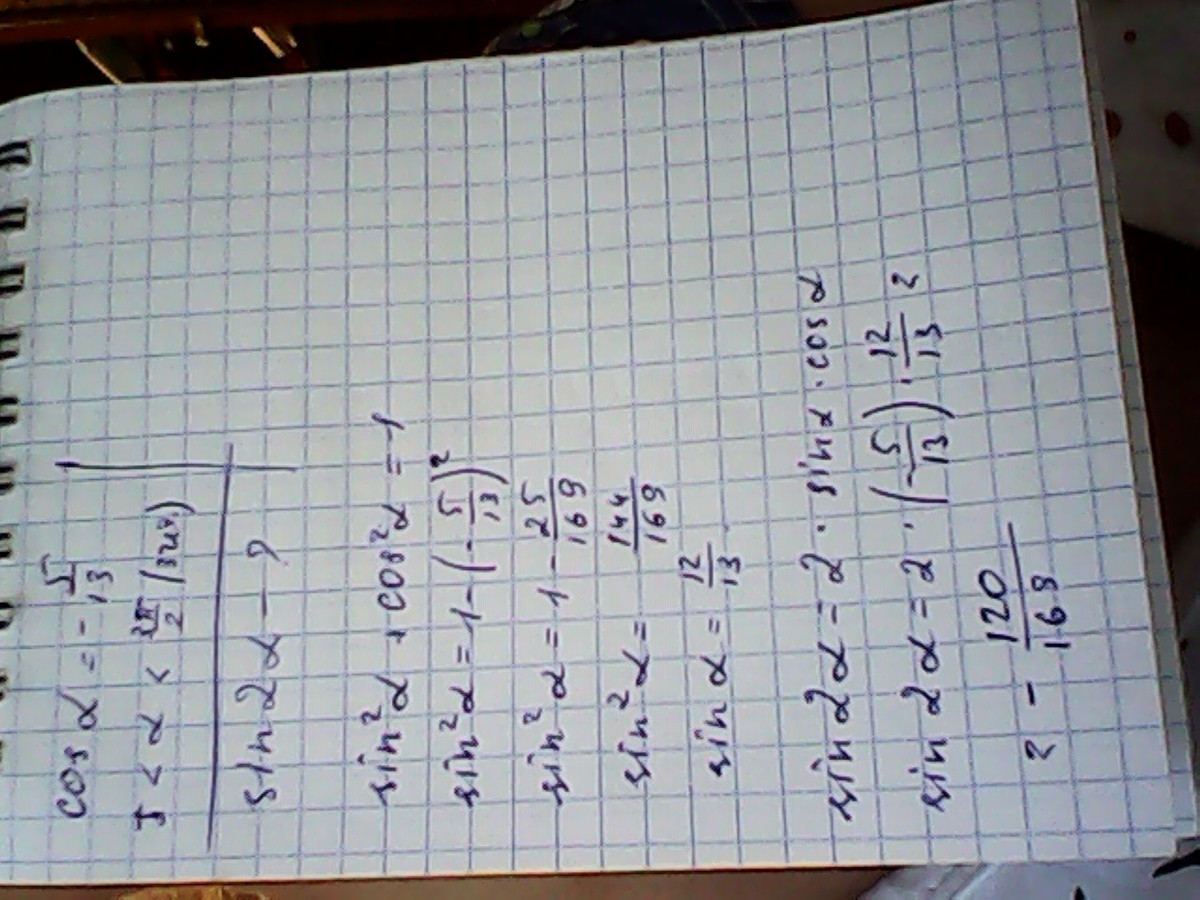 cos α = - 5/13
π < α < 3π/2 (III ч.)
sin 2α - ?
sin² α + cos² α = 1
sin² α = 1 - (- 5/13)²
sin² α = 1 - 25/169
sin² α = 144/169
sin α = 12/13
sin 2α = 2 · sin α · cos α
sin 2α = 2 · (- 5/13) · 12/13 =
= - 120/169